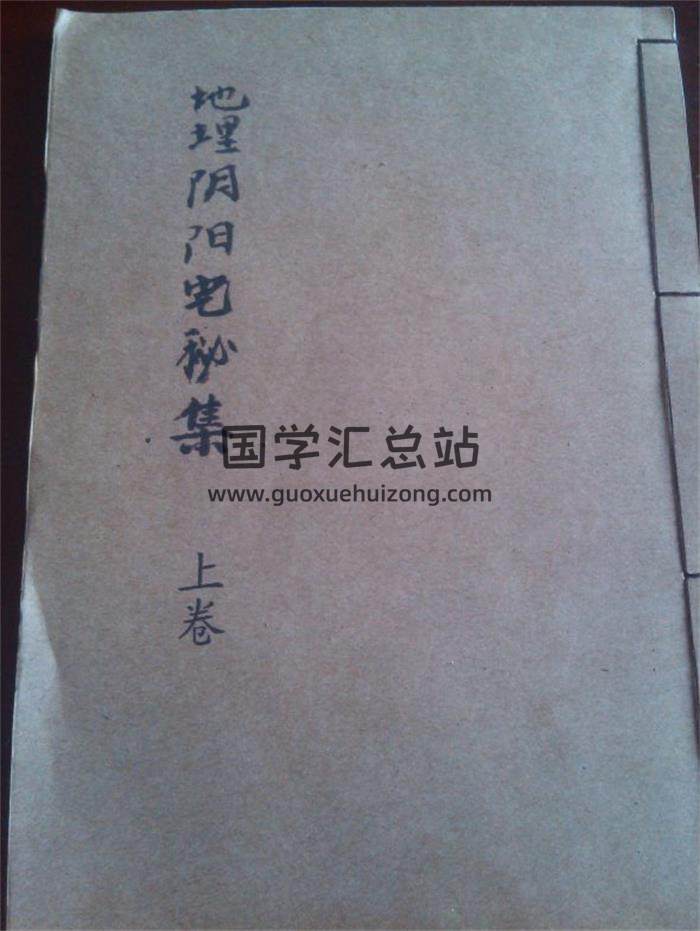 地理阴阳宅秘集
上卷
国学汇总站
www.guoxuehuizong.com